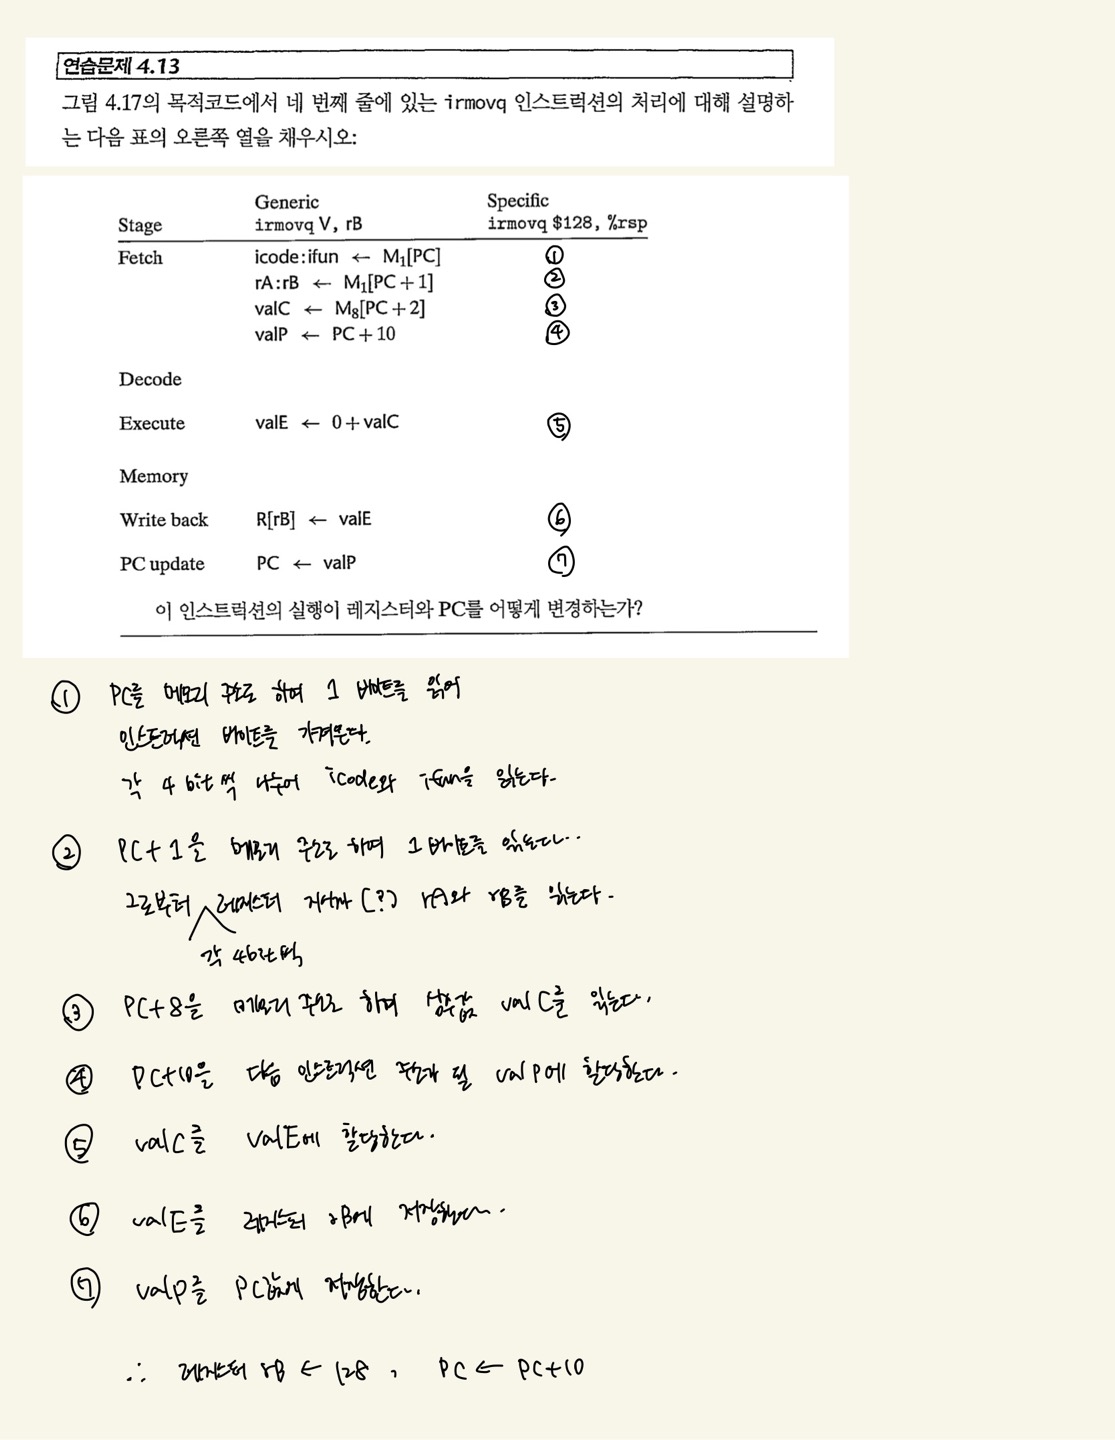 연습문제 4.13
그림 4.17의 목적코드에서 네 번째 줄에 있는 irmovq 인스트럭션의 처리에 대해 설명하
는 다음 표의 오른쪽 열을 채우시오:
Generic Specific
Stage irmovq V, rB irmovq $128, %rsp
Fetch icode:ifun ← M₁[PC] ①
rA:rB ← M₁[PC+1] ②
valC ← M₈[PC+2] ③
valP ← PC+10 ④
Decode
Execute valE ← 0+valC ⑤
Memory
Write back R[rB] ← valE ⑥
PC update PC ← valP ⑦
이 인스트럭션의 실행이 레지스터와 PC를 어떻게 변경하는가?
① PC를 메모리 주소로 하여 1 바이트를 읽어
인스트럭션 바이트를 가져온다.
각 4 bit씩 나누어 icode와 ifun을 읽는다.
② PC+1을 메모리 주소로 하여 1 바이트를 읽는다..
그로부터 레지스터 (?) rA와 rB를 읽는다.
각 4bit씩
③ PC+8을 메모리 주소로 하여 상수값 valC를 읽는다.
④ PC+10을 다음 인스트럭션 주소가 될 valP에 할당한다.
⑤ valC를 valE에 할당한다.
⑥ valE를 레지스터 rB에 저장한다.
⑦ valP를 PC값에 저장한다.
∴ 레지스터 rB ← 128, PC ← PC+10